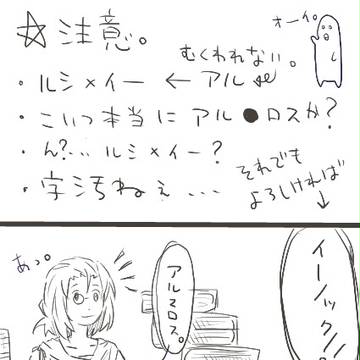 ☆注意。
オーイ。
むくわれない。
・ルシ×イー ← アル
・こいつ本当にアル●ロスか?
・ん?… ルシ×イー?
・字汚ねぇ…
それでも
よろしければ
↓
あっ。
アルマロス。
イーノック!